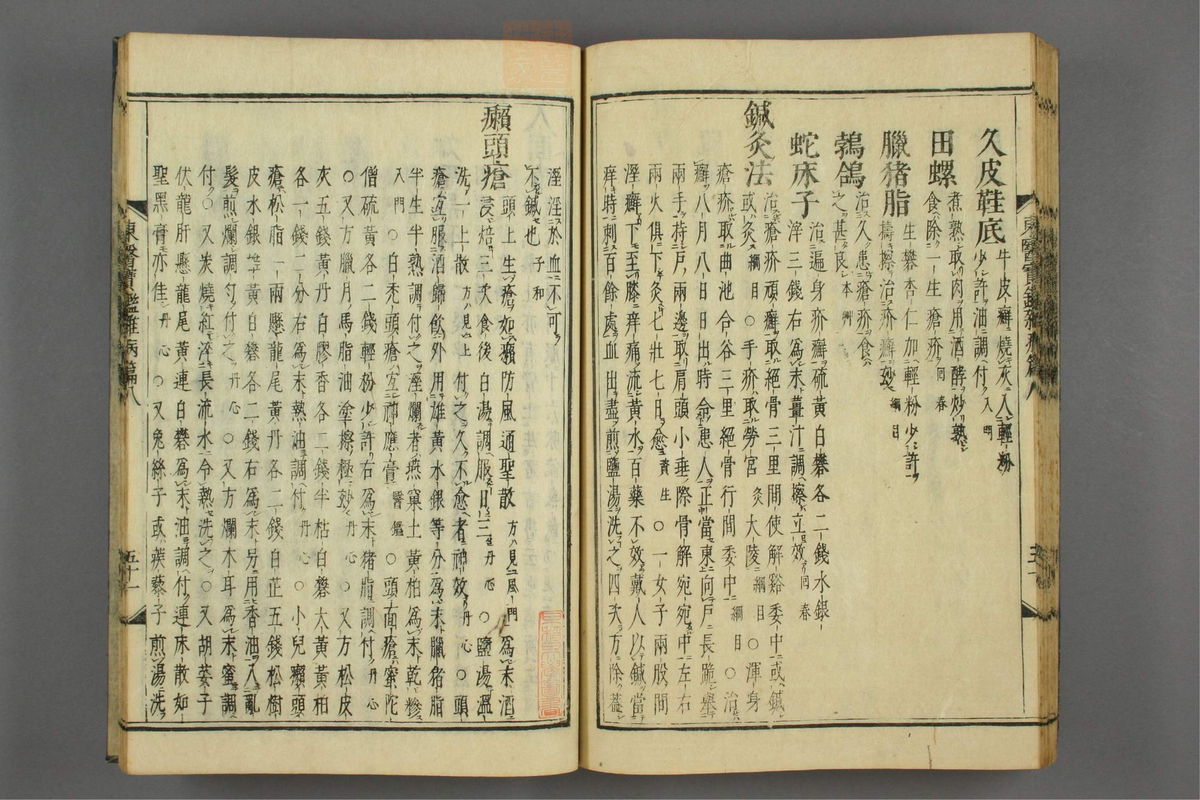 久皮鞋底 牛皮癬燒灰入輕粉
少許油調付 入門
田螺 煮熟取肉用酒酵炒熟
食除一生瘡疥 回春
臘猪脂 生礬杏仁加輕粉少許
擣擦治疥癬妙 綱目
鵓鴿 治久患瘡疥食
之甚良 本草
蛇床子 治遍身疥癬硫黄白礬各二錢水銀
滓三錢右爲末薑汁調擦立效 回春
鍼灸法 治瘡疥頑癬取絕骨三里間使解谿委中或鍼
或灸 綱目 ○手疥取勞宮灸大陵 綱目 ○渾身
瘡疥取曲池合谷三里絕骨行間委中 綱目 ○治
癬八月八日日出時令患人正當東向戶長跪舉
兩手持戶兩邊取肩頭小垂際骨解宛宛中左右
兩火俱下灸七壯七日愈 資生 ○一女子兩股間
溼癬下至膝痒痛流黄水百藥不效戴人以鍼當
痒時刺百餘處血出盡煎鹽湯洗之四次方除盖
溼淫於血不可
不鍼也 子和
癩頭瘡 頭上生瘡如癩防風通聖散 方見風門 爲末酒
浸焙三次食後白湯調服日三 丹心 ○鹽湯溫
洗一上散 方見上 付之久不愈者神效 丹心 ○頭
瘡宜服酒歸飲外用雄黄水銀等分爲末臘猪脂
半生半熟調付之溼爛者燕窠土黄栢爲末乾糝
入門 ○白禿頭瘡宜神應膏 醫鑑 ○頭面瘡蜜陀
僧硫黄各二錢輕粉少許右爲末猪脂調付 丹心
○又方臘月馬脂油塗擦極妙 丹心 ○又方松皮
灰五錢黄丹白膠香各二錢半枯白礬大黄黄栢
各一錢二分右爲末熟油調付 丹心 ○小兒癩頭
瘡松脂一兩懸龍尾黄丹各二錢白芷五錢松樹
皮水銀雄黄白礬各二錢右爲末另用香油入亂
髮煎爛調勻付之 丹心 ○又方爛木耳爲末蜜調
付○又炭燒紅淬長流水令熱洗之○又胡荽子
伏龍肝懸龍尾黄連白礬爲末油調付連床散如
聖黑膏亦佳 丹心 ○又兔絲子或蒺藜子煎湯洗
東醫寶鑑雜病篇八
五十一